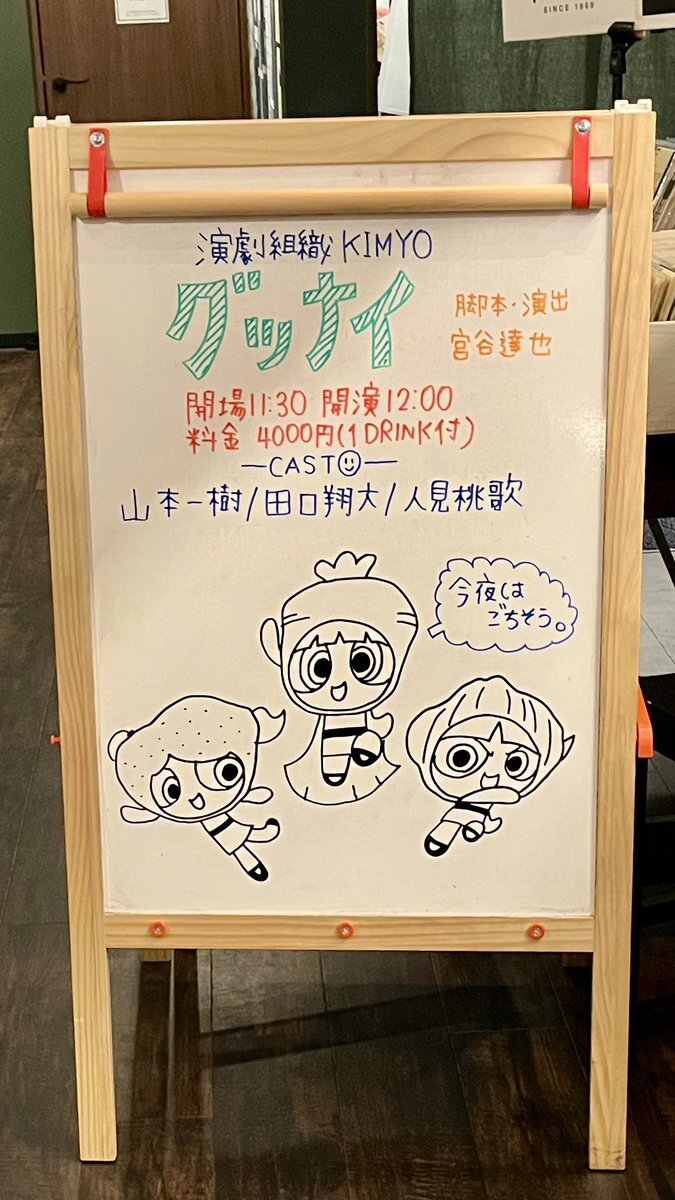 SINCE 1969
演劇組織KIMYO
グッナイ
脚本・演出
宮谷達也
開場11:30 開演12:00
料金 4000円(1DRINK付)
―CAST☺―
山本一樹/田口翔大/人見桃歌
今夜は
ごちそう。